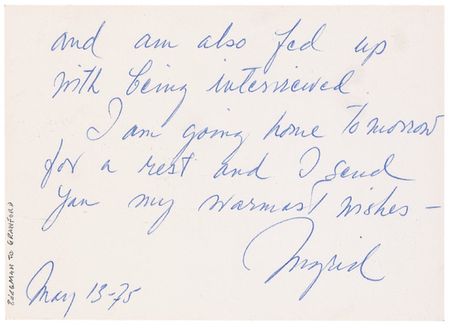 and am also fed up
with being interviewed.
I am going home tomorrow
for a rest and I send
you my warmest wishes –
Ingrid
May 13-75